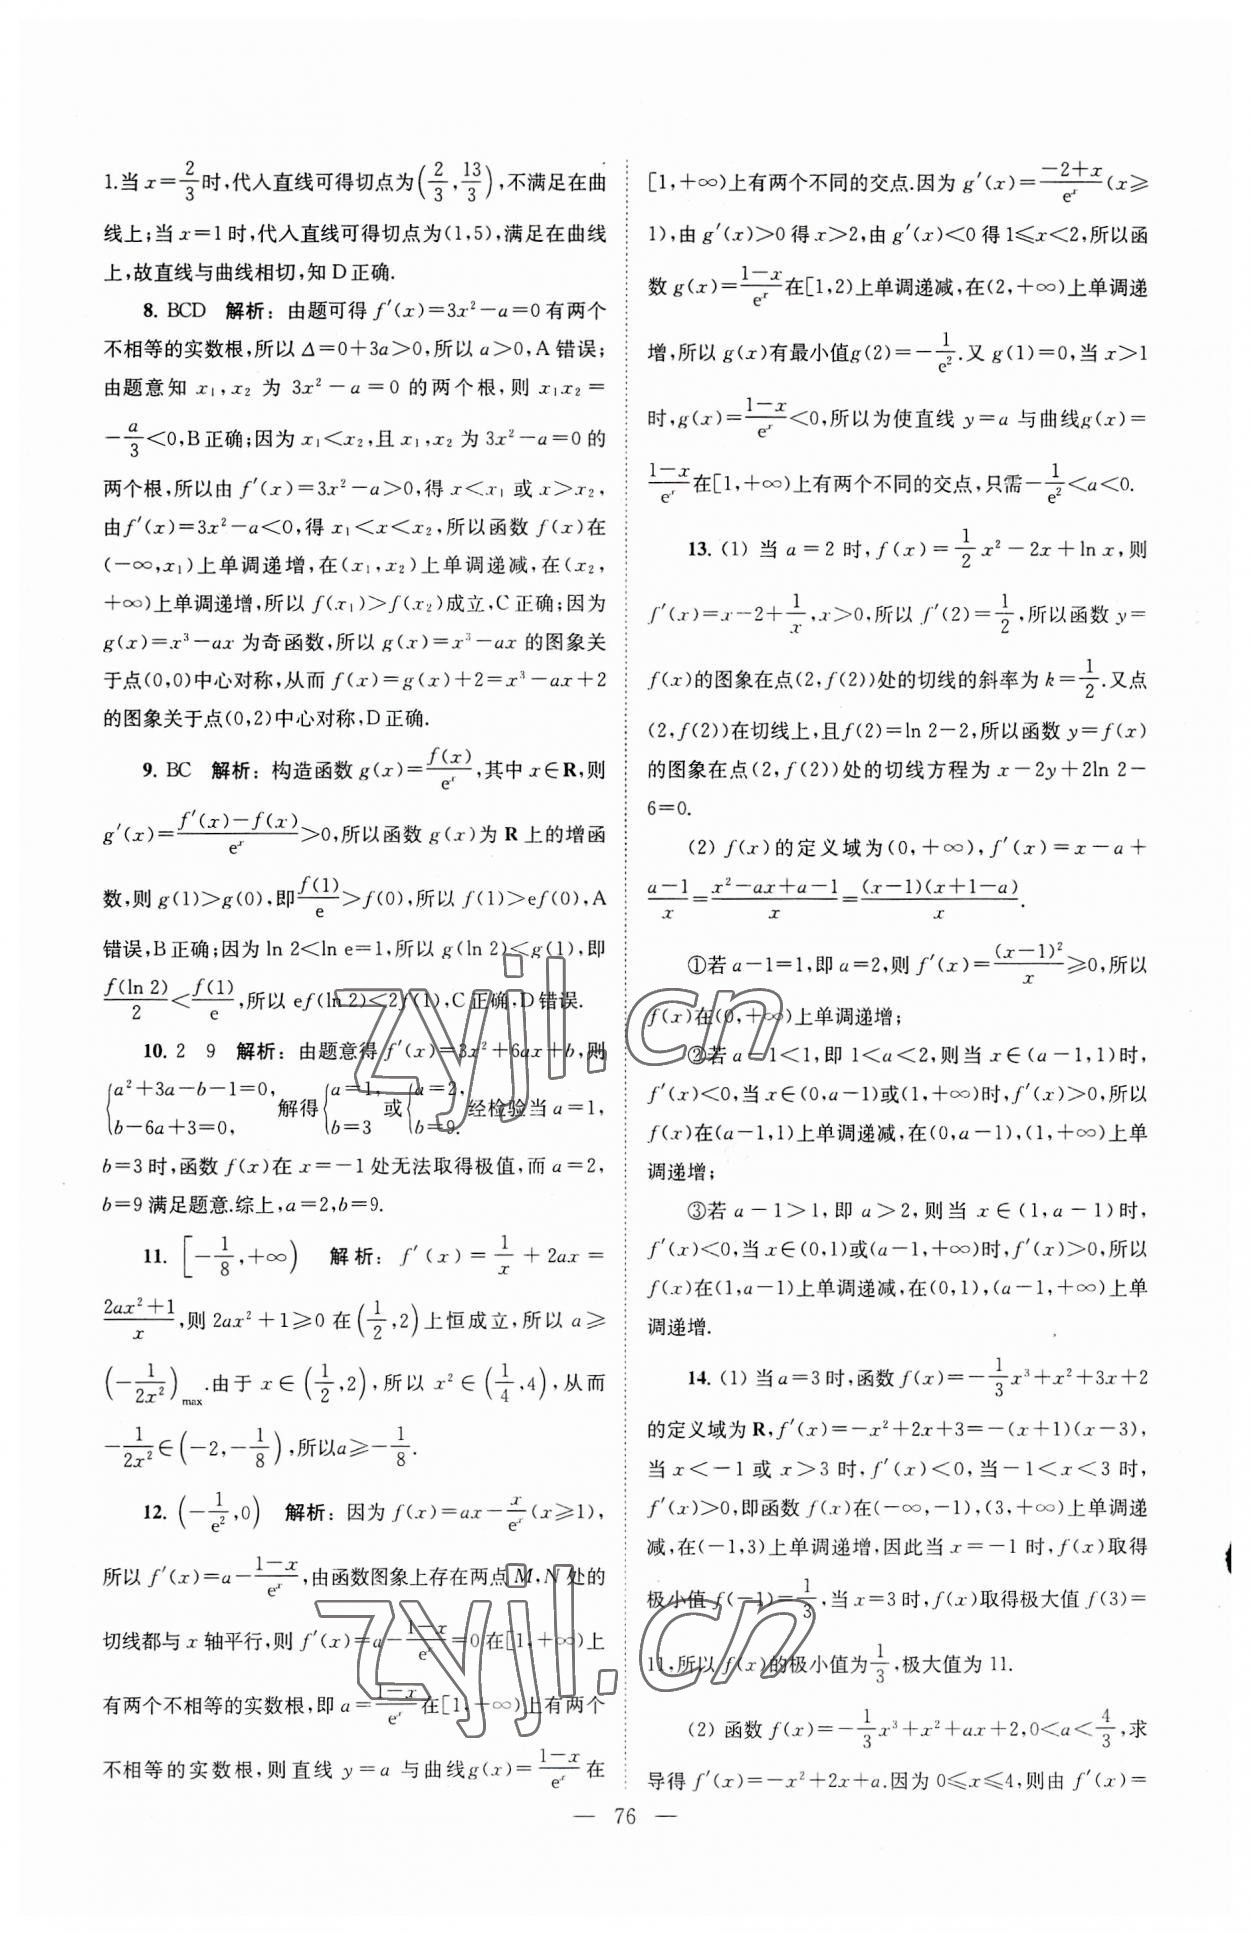 1.当 x=2/3时,代入直线可得切点为(2/3,13/3),不满足在曲
线上;当 x=1 时,代入直线可得切点为(1,5),满足在曲线
上,故直线与曲线相切,知 D 正确.
8. BCD 解析:由题可得 f′(x)=3x²-a=0 有两个
不相等的实数根,所以 Δ=0+3a>0,所以 a>0,A 错误;
由题意知 x₁,x₂ 为 3x²-a=0 的两个根,则 x₁x₂=
-a/3<0,B 正确;因为 x₁<x₂,且 x₁,x₂ 为 3x²-a=0 的
两个根,所以由 f′(x)=3x²-a>0,得 x<x₁ 或 x>x₂,
由f′(x)=3x²-a<0,得 x₁<x<x₂,所以函数 f(x)在
(-∞,x₁)上单调递增,在(x₁,x₂)上单调递减,在(x₂,
+∞)上单调递增,所以 f(x₁)>f(x₂)成立,C 正确;因为
g(x)=x³-ax 为奇函数,所以 g(x)=x³-ax 的图象关
于点(0,0)中心对称,从而 f(x)=g(x)+2=x³-ax+2
的图象关于点(0,2)中心对称,D 正确.
9. BC 解析:构造函数 g(x)=f(x)/eˣ,其中 x∈R,则
g′(x)=(f′(x)-f(x))/eˣ>0,所以函数 g(x)为 R 上的增函
数,则 g(1)>g(0),即f(1)/e>f(0),所以 f(1)>ef(0),A
错误,B 正确;因为 ln 2<ln e=1,所以 g(ln 2)<g(1),即
f(ln 2)/2<f(1)/e,所以 ef(ln 2)<2f(1),C 正确,D 错误.
10. 2 9 解析:由题意得 f′(x)=3x²+6ax+b,则
{a²+3a-b-1=0, b-6a+3=0, 解得{a=1, b=3 或{a=2, b=9. 经检验当 a=1,
b=3 时,函数 f(x)在 x=-1 处无法取得极值,而 a=2,
b=9 满足题意.综上,a=2,b=9.
11. [-1/8,+∞) 解析: f′(x)=1/x+2ax=
(2ax²+1)/x,则 2ax²+1⩾0 在(1/2,2)上恒成立,所以 a⩾
(-1/(2x²))max.由于 x∈(1/2,2),所以 x²∈(1/4,4),从而
-1/(2x²)∈(-2,-1/8),所以a⩾-1/8.
12. (-1/e²,0) 解析:因为 f(x)=ax-x/eˣ(x⩾1),
所以 f′(x)=a-(1-x)/eˣ,由函数图象上存在两点 M,N 处的
切线都与 x 轴平行,则 f′(x)=a-(1-x)/eˣ=0 在[1,+∞)上
有两个不相等的实数根,即 a=(1-x)/eˣ在[1,+∞)上有两个
不相等的实数根,则直线 y=a 与曲线g(x)=(1-x)/eˣ在
[1,+∞)上有两个不同的交点.因为 g′(x)=(-2+x)/eˣ(x⩾
1),由 g′(x)>0 得 x>2,由 g′(x)<0 得 1⩽x<2,所以函
数 g(x)=(1-x)/eˣ在[1,2)上单调递减,在(2,+∞)上单调递
增,所以 g(x)有最小值g(2)=-1/e².又 g(1)=0,当 x>1
时,g(x)=(1-x)/eˣ<0,所以为使直线 y=a 与曲线g(x)=
(1-x)/eˣ在[1,+∞)上有两个不同的交点,只需-1/e²<a<0.
13. (1) 当 a=2 时,f(x)=1/2x²-2x+ln x,则
f′(x)=x-2+1/x,x>0,所以 f′(2)=1/2,所以函数 y=
f(x)的图象在点(2,f(2))处的切线的斜率为 k=1/2.又点
(2,f(2))在切线上,且f(2)=ln 2-2,所以函数 y=f(x)
的图象在点(2,f(2))处的切线方程为 x-2y+2ln 2-
6=0.
(2) f(x)的定义域为(0,+∞),f′(x)=x-a+
(a-1)/x=(x²-ax+a-1)/x=(x-1)(x+1-a)/x.
①若 a-1=1,即 a=2,则 f′(x)=(x-1)²/x⩾0,所以
f(x)在(0,+∞)上单调递增;
②若 a-1<1,即 1<a<2,则当 x∈(a-1,1)时,
f′(x)<0,当 x∈(0,a-1)或(1,+∞)时,f′(x)>0,所以
f(x)在(a-1,1)上单调递减,在(0,a-1),(1,+∞)上单
调递增;
③若 a-1>1,即 a>2,则当 x∈(1,a-1)时,
f′(x)<0,当 x∈(0,1)或(a-1,+∞)时,f′(x)>0,所以
f(x)在(1,a-1)上单调递减,在(0,1),(a-1,+∞)上单
调递增.
14. (1) 当 a=3 时,函数 f(x)=-1/3x³+x²+3x+2
的定义域为 R,f′(x)=-x²+2x+3=-(x+1)(x-3),
当 x<-1 或 x>3 时,f′(x)<0,当-1<x<3 时,
f′(x)>0,即函数 f(x)在(-∞,-1),(3,+∞)上单调递
减,在(-1,3)上单调递增,因此当 x=-1 时,f(x)取得
极小值 f(-1)=1/3,当 x=3 时,f(x)取得极大值 f(3)=
11,所以 f(x)的极小值为1/3,极大值为 11.
(2) 函数 f(x)=-1/3x³+x²+ax+2,0<a<4/3,求
导得 f′(x)=-x²+2x+a.因为 0⩽x⩽4,则由 f′(x)=
— 76 —
zyjl.cn
zyjl.cn